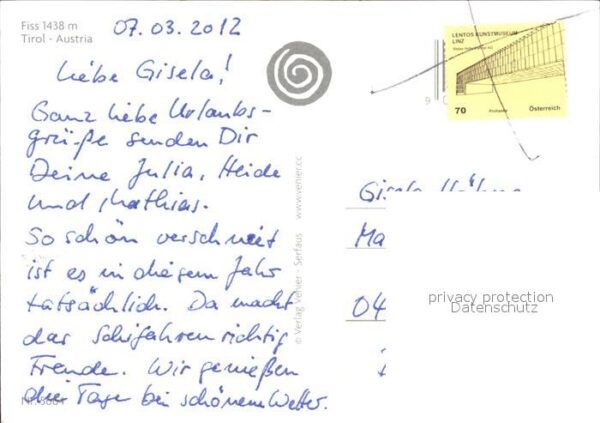 Fiss 1438 m
Tirol - Austria
07.03.2012
Liebe Gisela!
Ganz liebe Urlaubs-
grüße senden Dir
Deine Julia, Heide
und Mathias.
So schön verschneit
ist es in diesem Jahr
tatsächlich. Da macht
das Schifahren richtig
Freude. Wir genießen
die Tage bei schönem Wetter.
© Verlag Venier - Serfaus www.venier.cc
LENTOS KUNSTMUSEUM
LINZ
70 Österreich
Gisela
Ma
04
privacy protection
Datenschutz